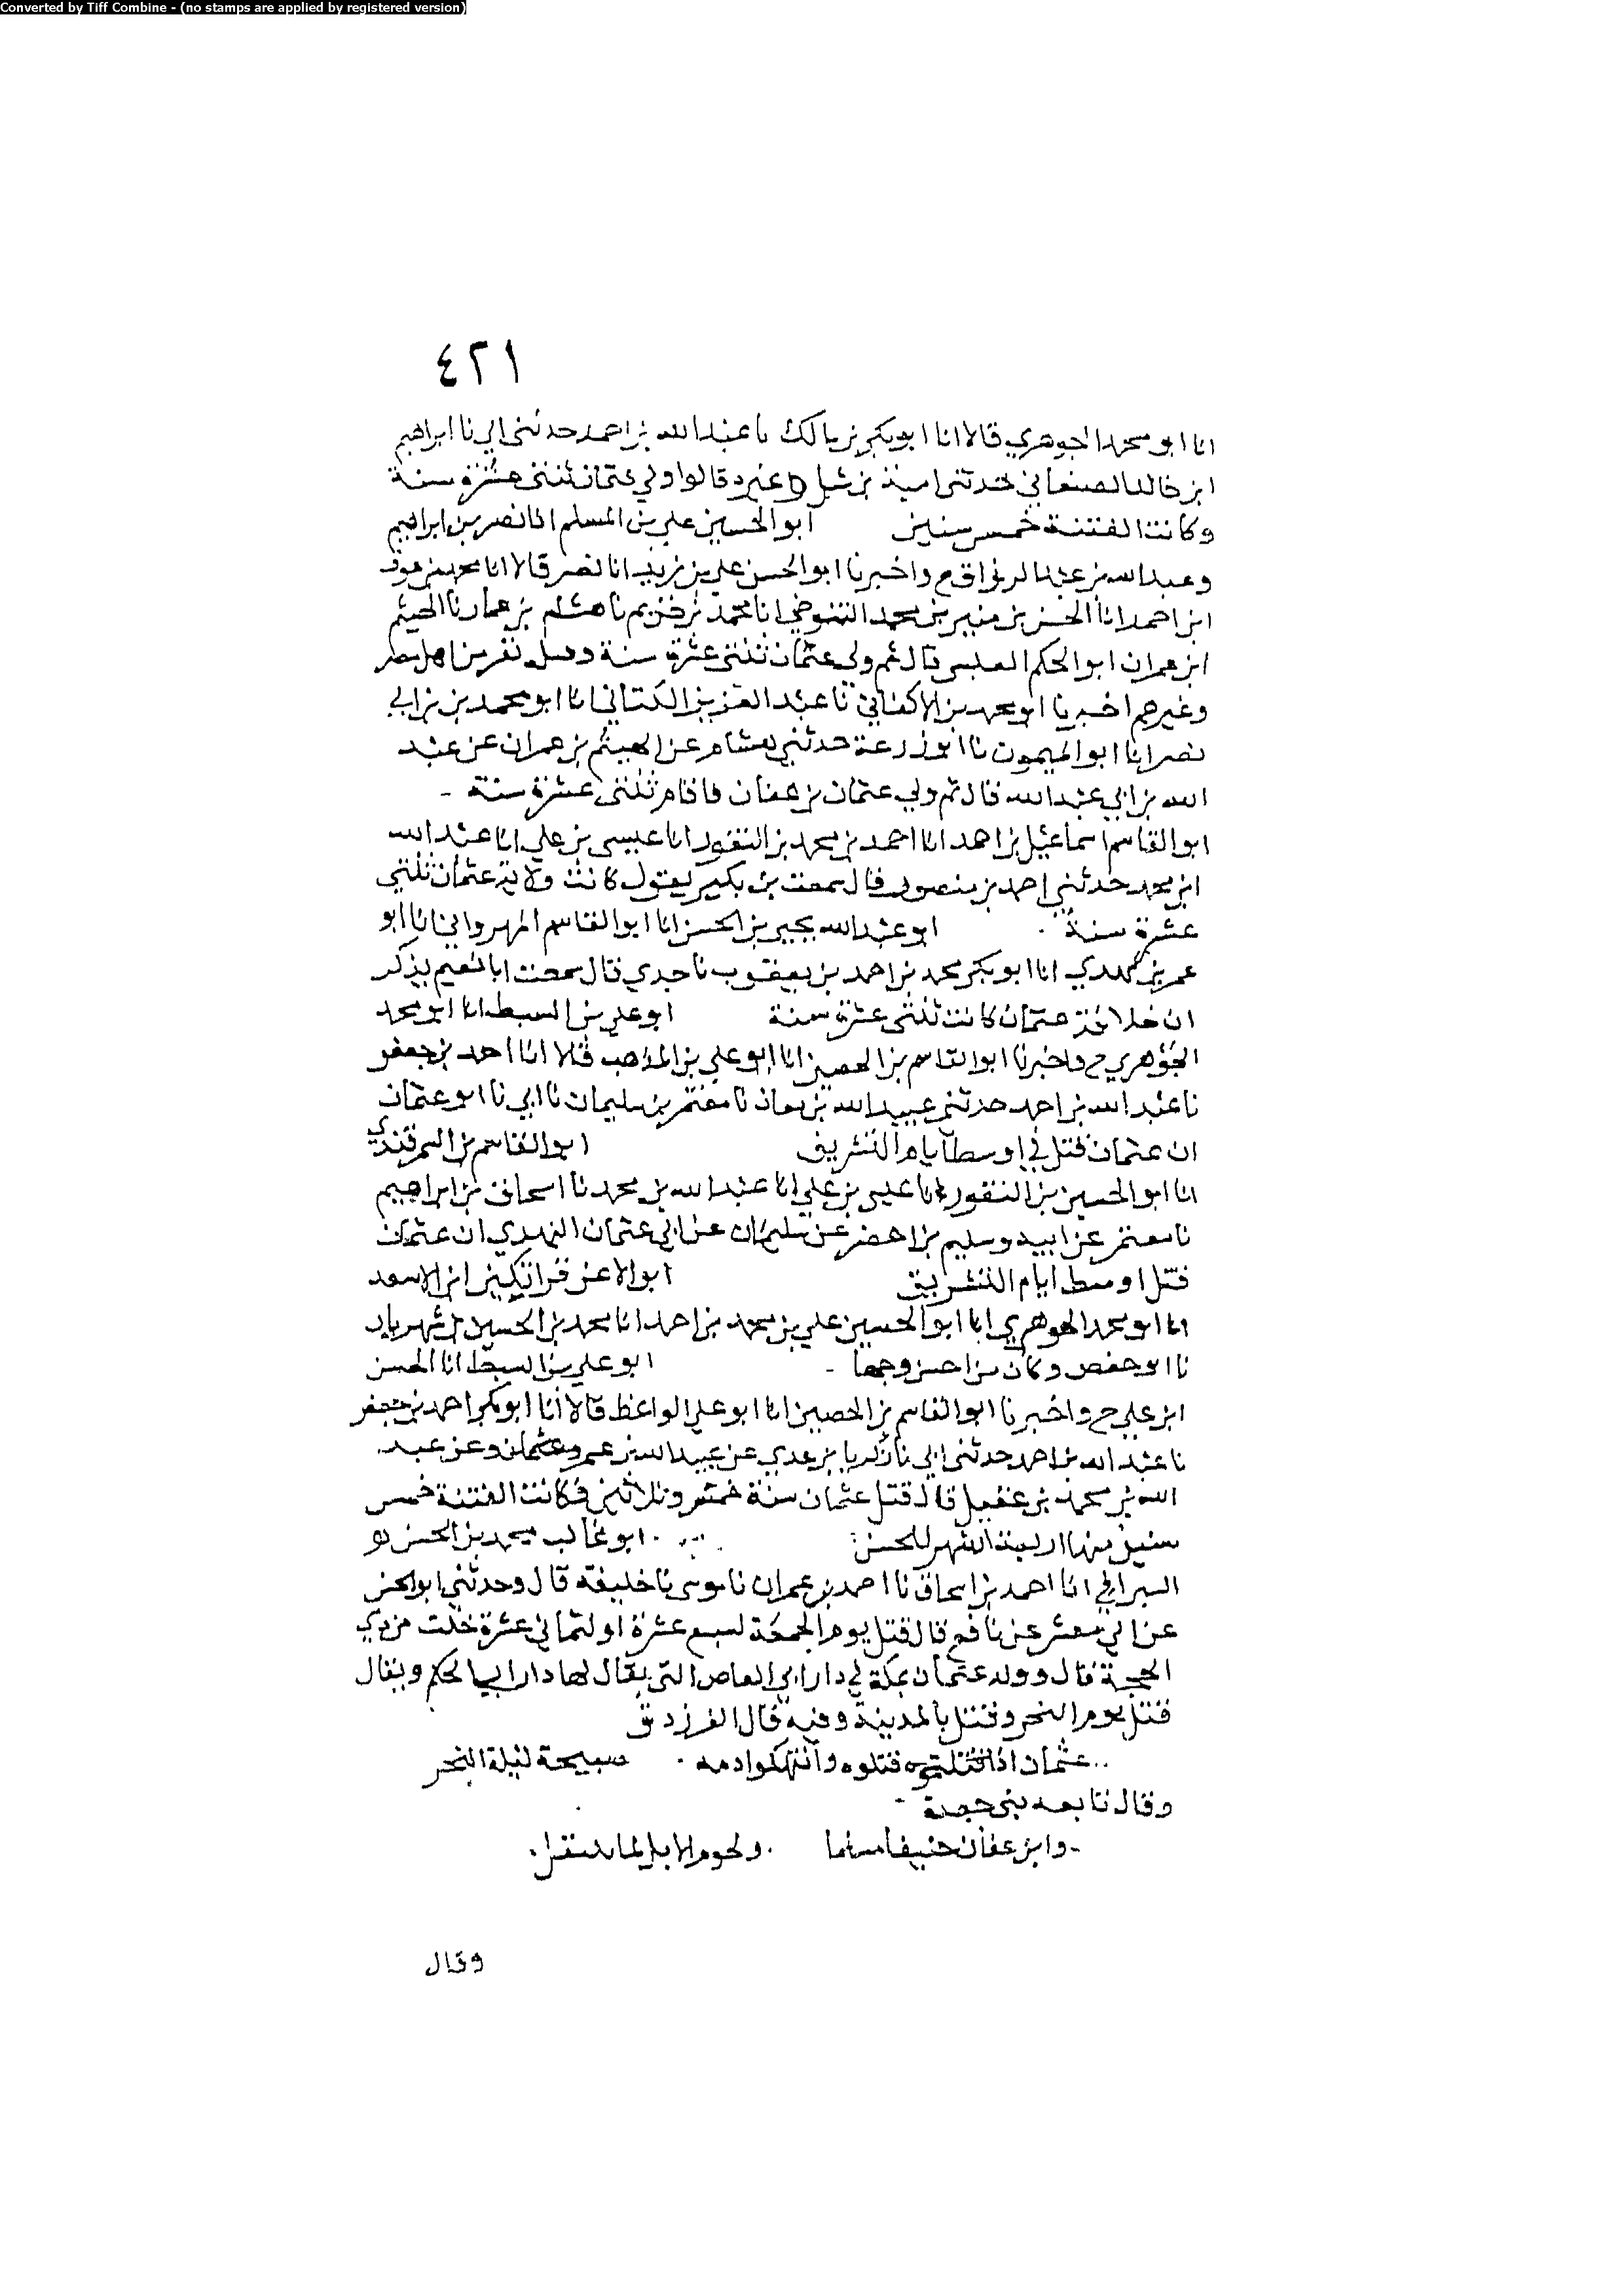 Converted by Tiff Combine - (no stamps are applied by registered version)
٤٢١
انا ابو محمد الجوهري قالا انا ابو بكر بن مالك نا عبد الله بن احمد حدثني ابي نا ابراهيم
ابن خالد الصنعاني حدثني امية بن شبل وغيره قالوا ولي عثمان ثنتي عشرة سنة
وكانت الفتنة خمس سنين ابو الحسين علي بن المسلم انا نصر بن ابراهيم
وعبد الله بن عبد الرزاق ح واخبرنا ابو الحسن علي بن زيد انا نصر قالا انا محمد بن عوف
ابن احمد انا الحسن بن منير بن محمد التنوخي انا محمد بن خريم نا هشام بن عمار نا الهيثم
ابن عمران ابو الحكم العبسي قال ثم ولي عثمان ثنتي عشرة سنة وقتله نفر من اهل مصر
وغيرهم اخبرنا ابو محمد بن الاكفاني نا عبد العزيز الكتاني انا ابو محمد بن ابي
نصر انا ابو الميمون نا ابو زرعة حدثني هشام عن الهيثم بن عمران عن عبد
الله بن ابي عبد الله قال ثم ولي عثمان بن عفان فاقام ثنتي عشرة سنة
ابو القاسم اسماعيل بن احمد انا احمد بن محمد بن النقور انا عيسى بن علي انا عبد الله
ابن محمد حدثني احمد بن منصور قال سمعت بن بكير يقول كانت ولاية عثمان ثنتي
عشرة سنة ابو عبد الله يحيى بن الحسن انا ابو القاسم المهرواني انا ابو
عمر بن مهدي انا ابو بكر محمد بن احمد بن يعقوب نا جدي قال سمعت ابا نعيم يذكر
ان خلافة عثمان كانت ثنتي عشرة سنة ابو علي بن السبط انا ابو محمد
الجوهري ح واخبرنا ابو القاسم بن الحصين انا ابو علي بن المذهب قالا انا احمد بن جعفر
نا عبد الله بن احمد حدثني عبيد الله بن معاذ نا معتمر بن سليمان نا ابي نا ابو عثمان
ان عثمان قتل في اوسط ايام التشريق ابو القاسم بن السمرقندي
انا ابو الحسين بن النقور انا عيسى بن علي انا عبد الله بن محمد نا اسحاق بن ابراهيم
نا معتمر عن ابيه وسليم بن اخضر عن سليمان عن ابي عثمان النهدي ان عثمان
قتل اوسط ايام التشريق ابو الاعز قراتكين ابن الاسعد
انا ابو محمد الجوهري انا ابو الحسين علي بن محمد بن احمد انا محمد بن الحسين بن شهريار
نا ابو حفص وكان من احسن وجها ابو علي بن السبط انا الحسن
ابن علي ح واخبرنا ابو القاسم بن الحصين انا ابو علي الواعظ قالا انا ابو بكر احمد بن جعفر
نا عبد الله بن احمد حدثني ابي نا زكريا بن عدي عن عبيد الله بن عمرو وعن عبد
الله بن محمد بن عقيل قال قتل عثمان سنة خمس وثلاثين فكانت الفتنة خمس
سنين منها اربعة اشهر للحسن ابو غالب محمد بن الحسن نو
السيرافي انا احمد بن اسحاق نا احمد بن عمران نا موسى نا خليفة قال وحدثني ابو الحسن
عن ابي معشر عن نافع قال قتل يوم الجمعة لسبع عشرة او لثماني عشرة خلت من ذي
الحجة قال وولد عثمان بمكة في دار ابي العاص التي يقال لها دار ابي الحكم ويقال
قتل يوم النحر وقتل بالمدينة وفيه قال الفرزدق
عثمان اذ قتلوه وانتهكوا دمه صبيحة ليلة النحر
وقال نابغة بني جعدة
وابن عفان حنيفا مسلما ولحوم الابل لما تنتقل
وقال